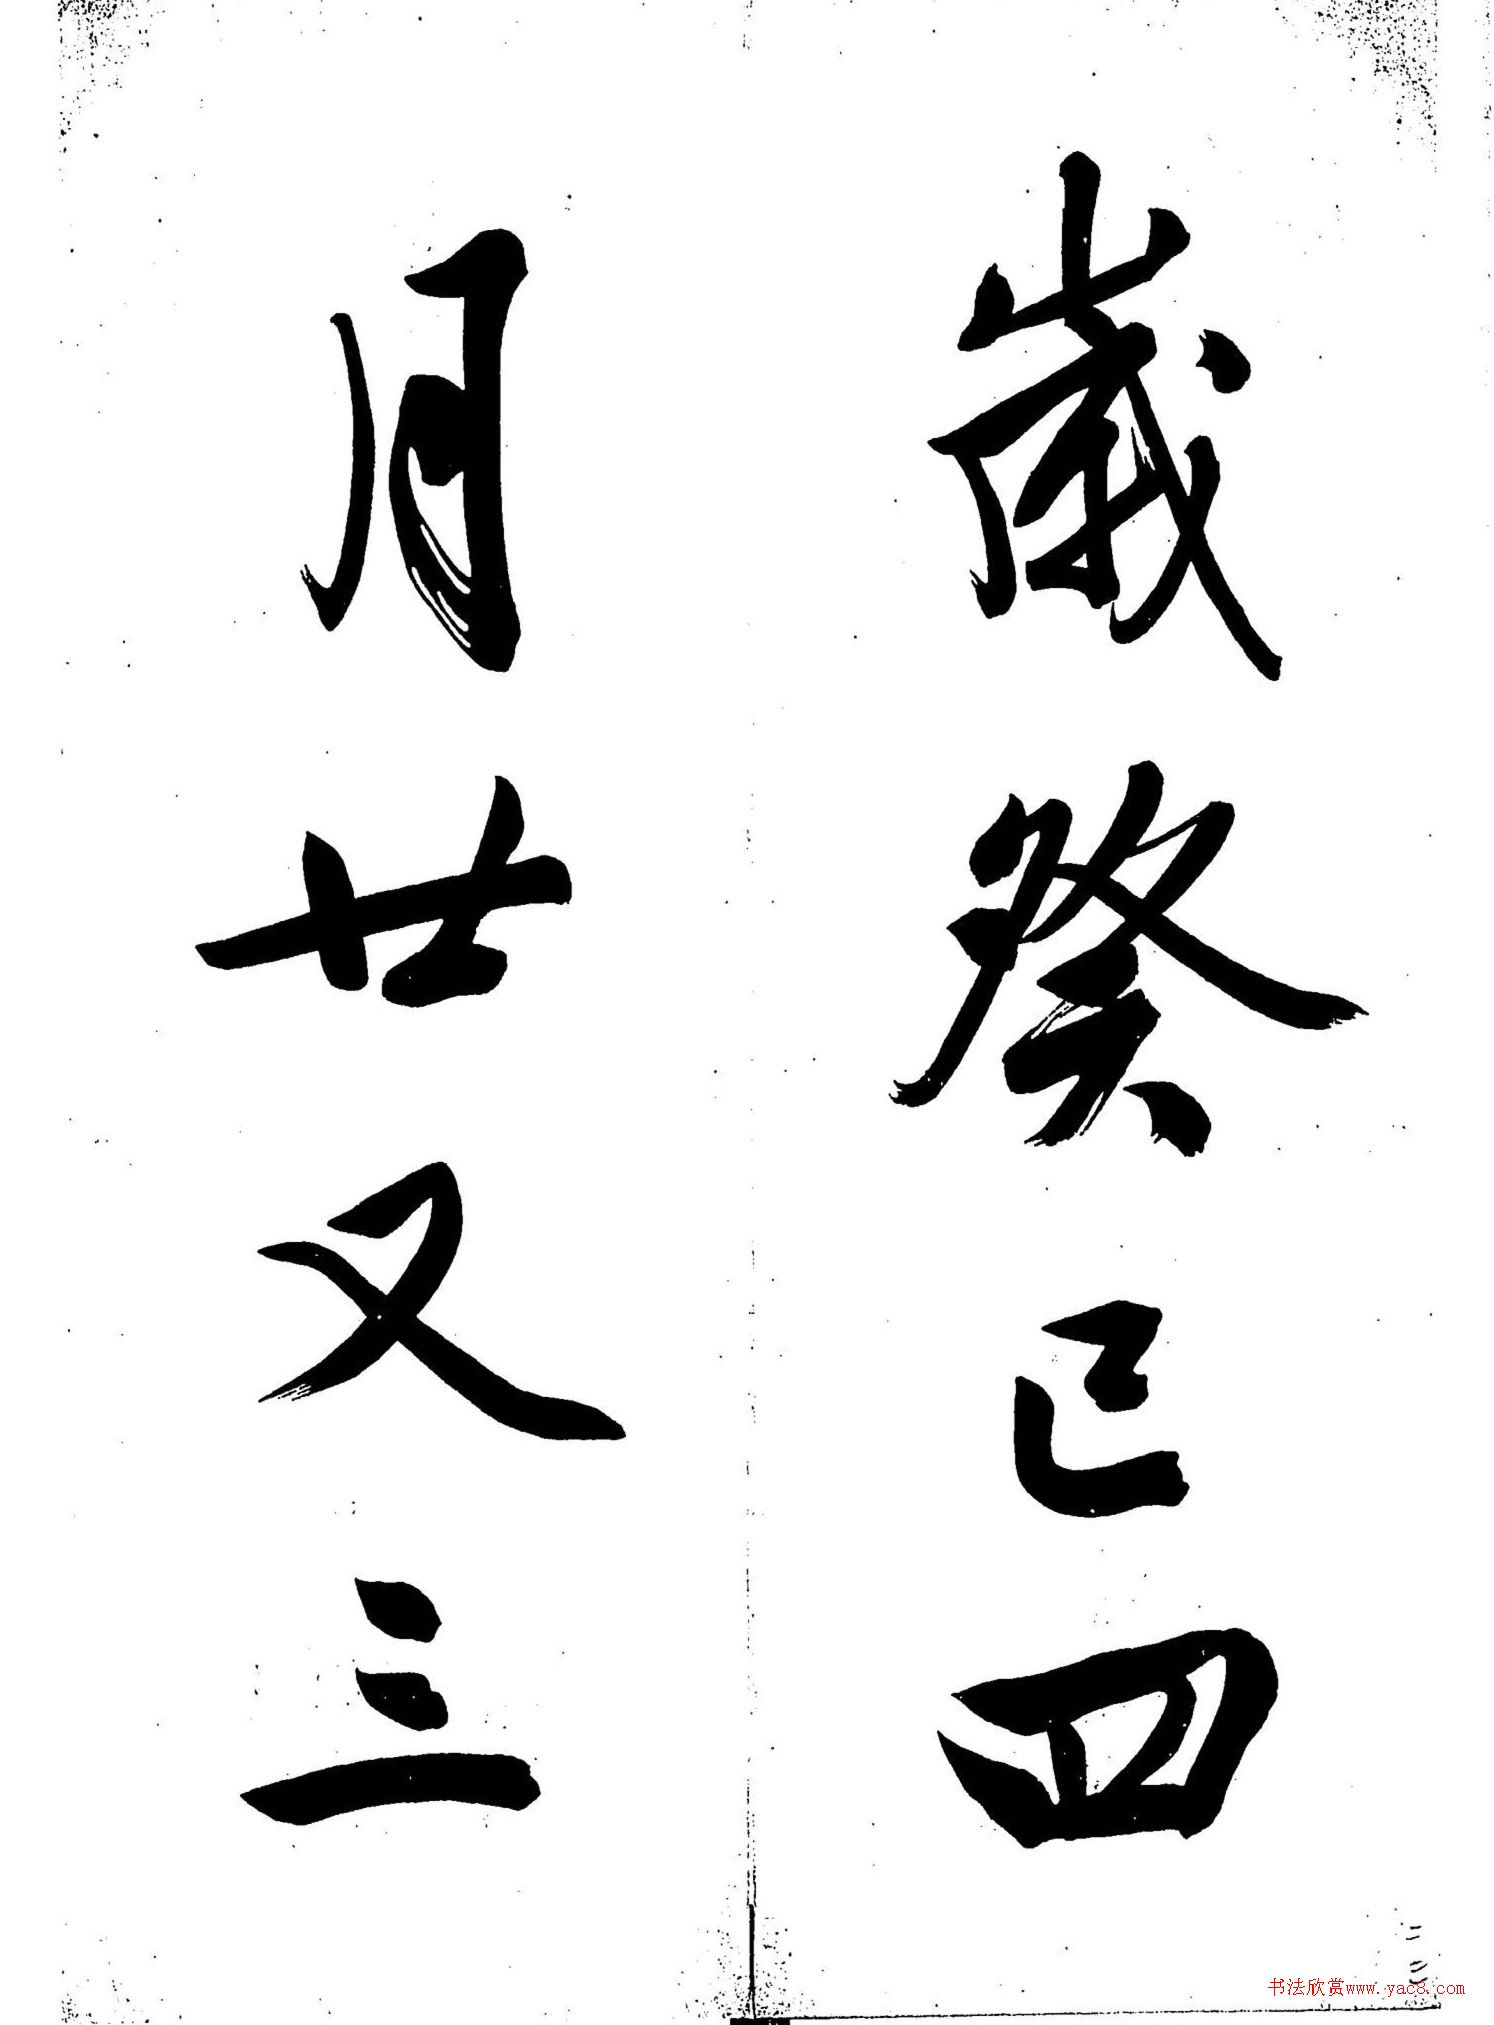 歲癸巳四
月廿又三
二三
书法欣赏www.yac8.com